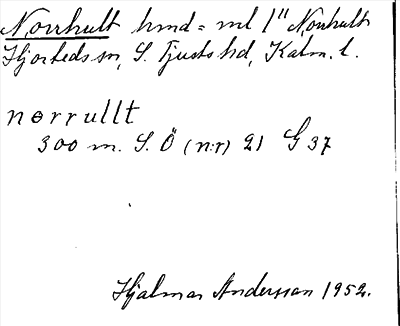 Norrhult hmd = ml 1" Norrhult
Hjorteds sn, S. Tjusts hd, Kalm. l.
nørrullt
300 m. S. Ö (n:r) 21 G 37
Hjalmar Andersson 1952.